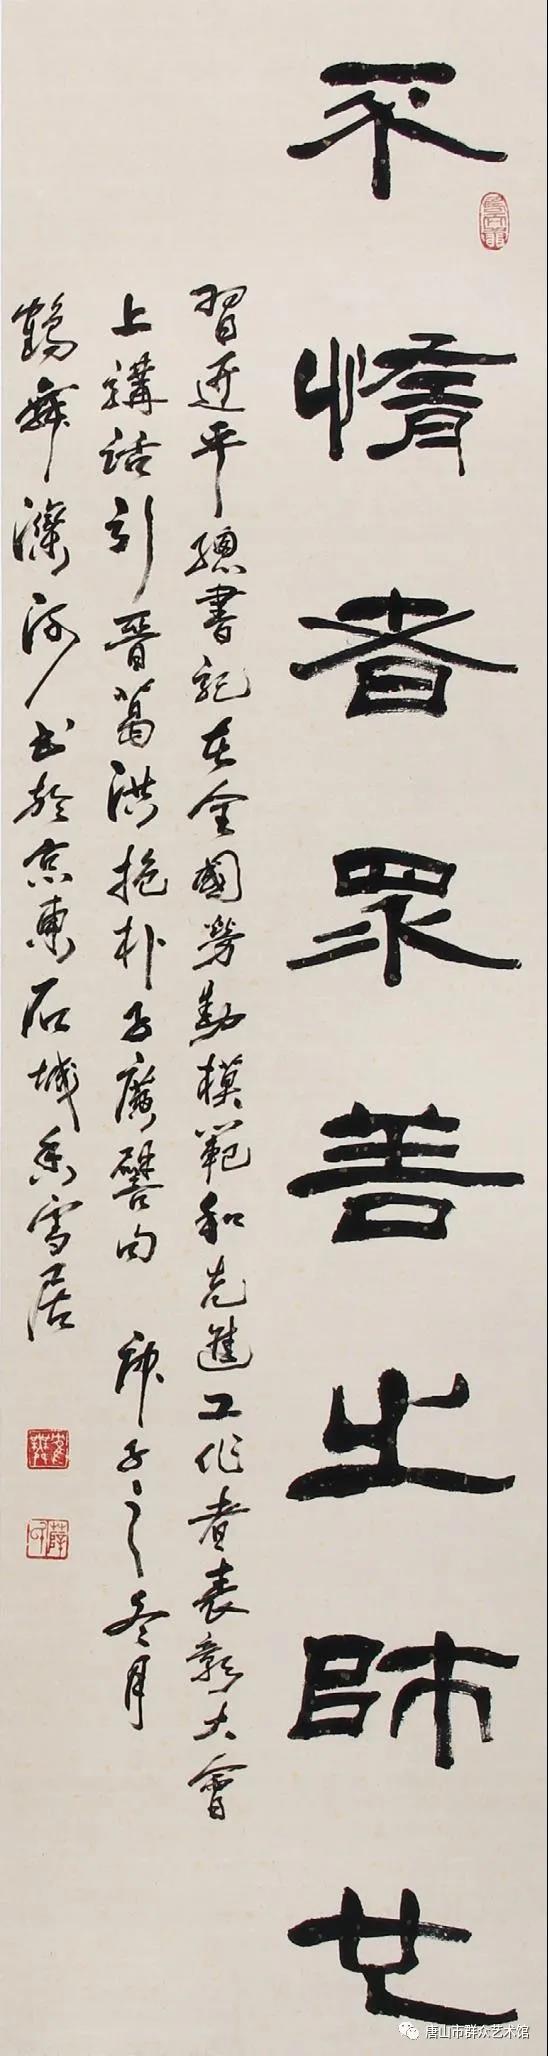 不惰者眾善之師也
習近平總書記在全國勞動模範和先進工作者表彰大會
上講話引晉葛洪抱朴子廣譬句 庚子之冬月
鶴舞灤河書於京東石城香雪居
唐山市群众艺术馆